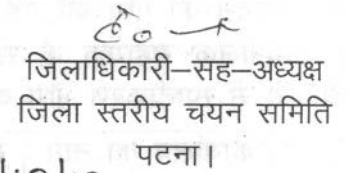 जिलाधिकारी–सह–अध्यक्ष
जिला स्तरीय चयन समिति
पटना।